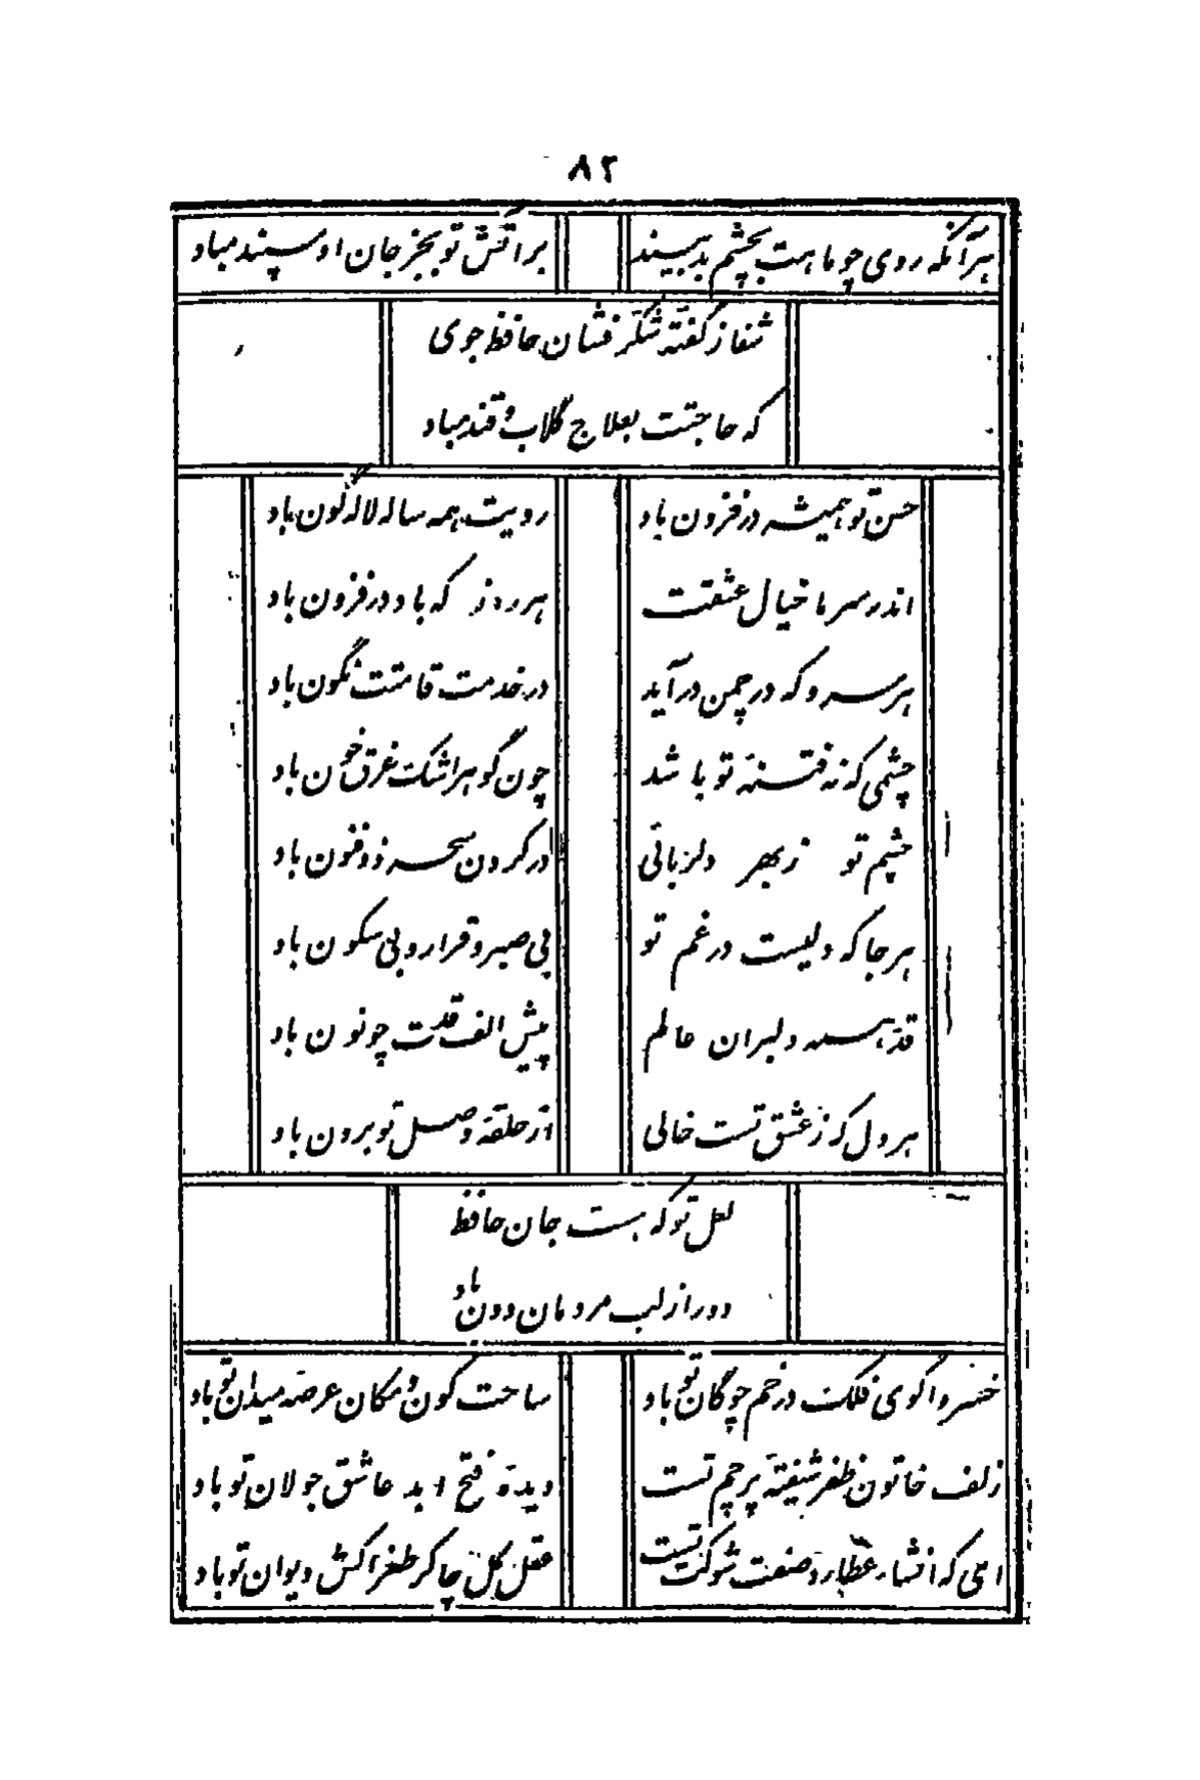 ۸۲
هرآنکه روی چو ماهت بچشم بد بیند برآتش تو بجز جان او سپند مباد
شفا ز گفتهٔ شکر فشان حافظ جوی
که حاجتت بعلاج گلاب و قند مباد
حسن تو همیشه در فزون باد رویت همه ساله لاله گون باد
اندر سر ما خیال عشقت هر روز که باد در فزون باد
هر سرو که در چمن درآید در خدمت قامتت نگون باد
چشمی که نه فتنهٔ تو باشد چون گوهر اشک غرق خون باد
چشم تو ز بهر دلربائی در کردن سحر ذوفنون باد
هر جا که دلیست در غم تو بی صبر و قرار و بی سکون باد
قد همه دلبران عالم پیش الف قدت چو نون باد
هر دل که ز عشق تست خالی از حلقهٔ وصل تو برون باد
لعل تو که هست جان حافظ
دور از لب مردمان دون باد
خسروا گوی فلک در خم چوگان تو باد ساحت کون و مکان عرصهٔ میدان تو باد
زلف خاتون ظفر شیفتهٔ پرچم تست دیدهٔ فتح ابد عاشق جولان تو باد
ای که انشاء عطارد صنعت شوکت تست عقل کل چاکر طغراکش دیوان تو باد